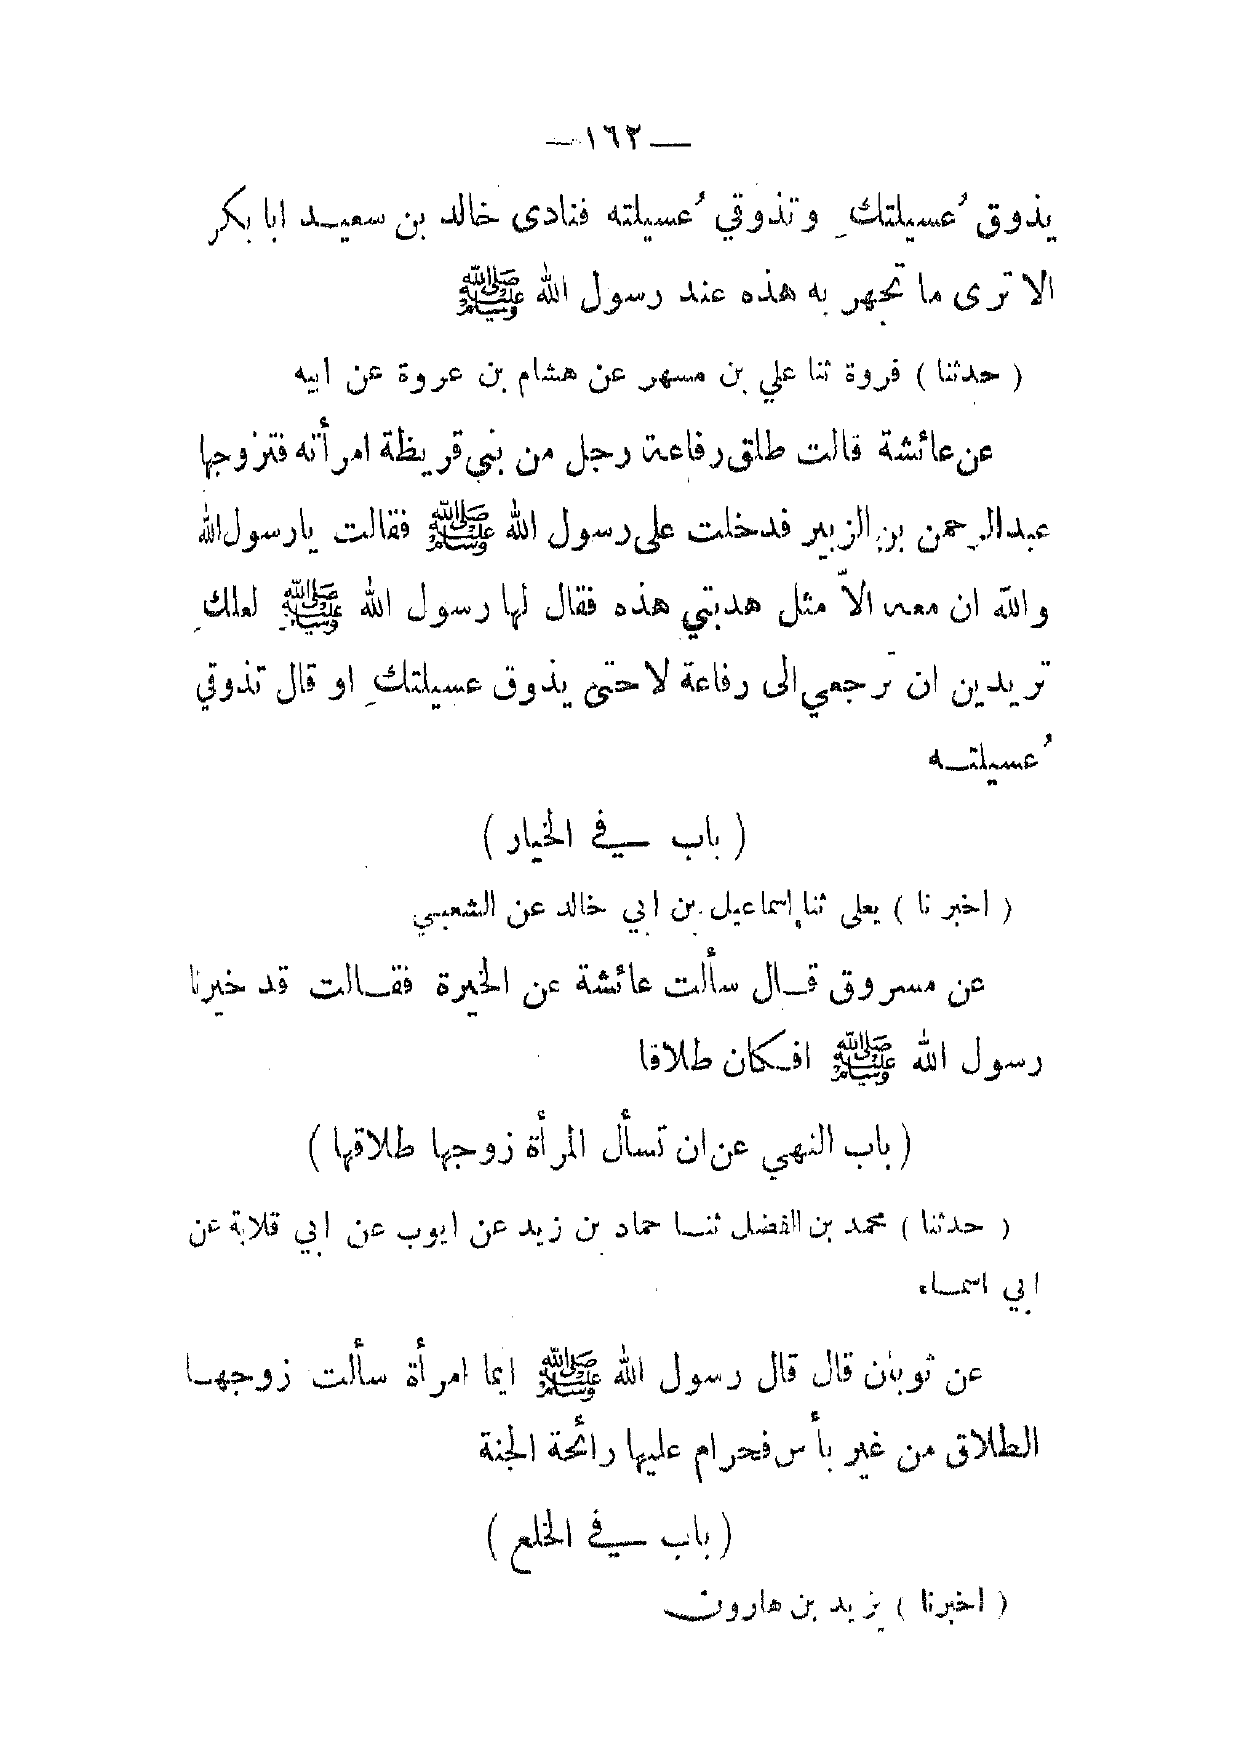 — ١٦٢ —
يذوق عُسيلتكِ وتذوقي عُسيلته فنادى خالد بن سعيد ابا بكر
الا ترى ما تجهر به هذه عند رسول الله ﷺ
( حدثنا ) فروة ثنا علي بن مسهر عن هشام بن عروة عن ابيه
عن عائشة قالت طلق رفاعة رجل من بني قريظة امرأته فتزوجها
عبدالرحمن بن الزبير فدخلت على رسول الله ﷺ فقالت يارسول الله
والله ان معه الاّ مثل هدبتي هذه فقال لها رسول الله ﷺ لعلكِ
تريدين ان ترجعي الى رفاعة لا حتى يذوق عسيلتكِ او قال تذوقي
عُسيلته
( باب في الخيار )
( اخبرنا ) يعلى ثنا إسماعيل بن ابي خالد عن الشعبي
عن مسروق قال سألت عائشة عن الخيرة فقالت قد خيرنا
رسول الله ﷺ افكان طلاقا
( باب النهي عن ان تسأل المرأة زوجها طلاقها )
( حدثنا ) محمد بن الفضل ثنا حماد بن زيد عن ايوب عن ابي قلابة عن
ابي اسماء
عن ثوبان قال قال رسول الله ﷺ ايما امرأة سألت زوجها
الطلاق من غير بأس فحرام عليها رائحة الجنة
( باب في الخلع )
( اخبرنا ) يزيد بن هارون